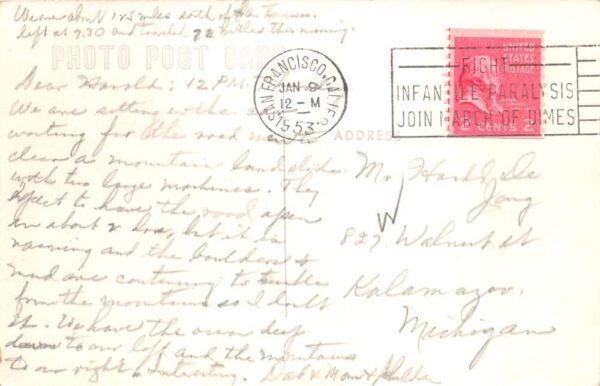 We are about 125 miles south of San
left at 9.30 and traveled 72 miles this morning
PHOTO POST CARD
Dear Harold: 12 P.M.
We are sitting in the
waiting for the road men to
clear a mountain landslide
with two large machines. They
expect to have the road open
in about 2 hrs, but it is
raining and the boulders &
mud are continuing to tumble
from the mountains so I doubt
it. We have the ocean deep
down to our left and the mountains
to our right. Interesting. Dad & Mom &
SAN FRANCISCO, CALIF.
JAN 9
12 - M
1953
FIGHT
INFANTILE PARALYSIS
JOIN MARCH OF DIMES
UNITED
STATES
POSTAGE
JOHN
ADAMS
2 CENTS 2
ADDRESS
Mr. Harold De
Jong
W
827 Walnut St
Kalamazoo.
Michigan